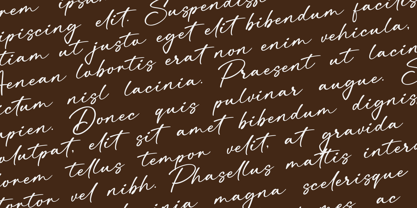 ipsum
ipiscing elit. Suspendisse
tiam ut justo eget elit bibendum facilis
Aenean lobortis erat non enim vehicula.
ictum nisl lacinia. Praesent ut lacin
apien. Donec quis pulvinar augue. S
volutpat, elit sit amet bibendum dignis
lorem tellus tempor velit, at gravida
tortor vel nibh. Phasellus mattis interd
lacinia magna scelerisque
ac